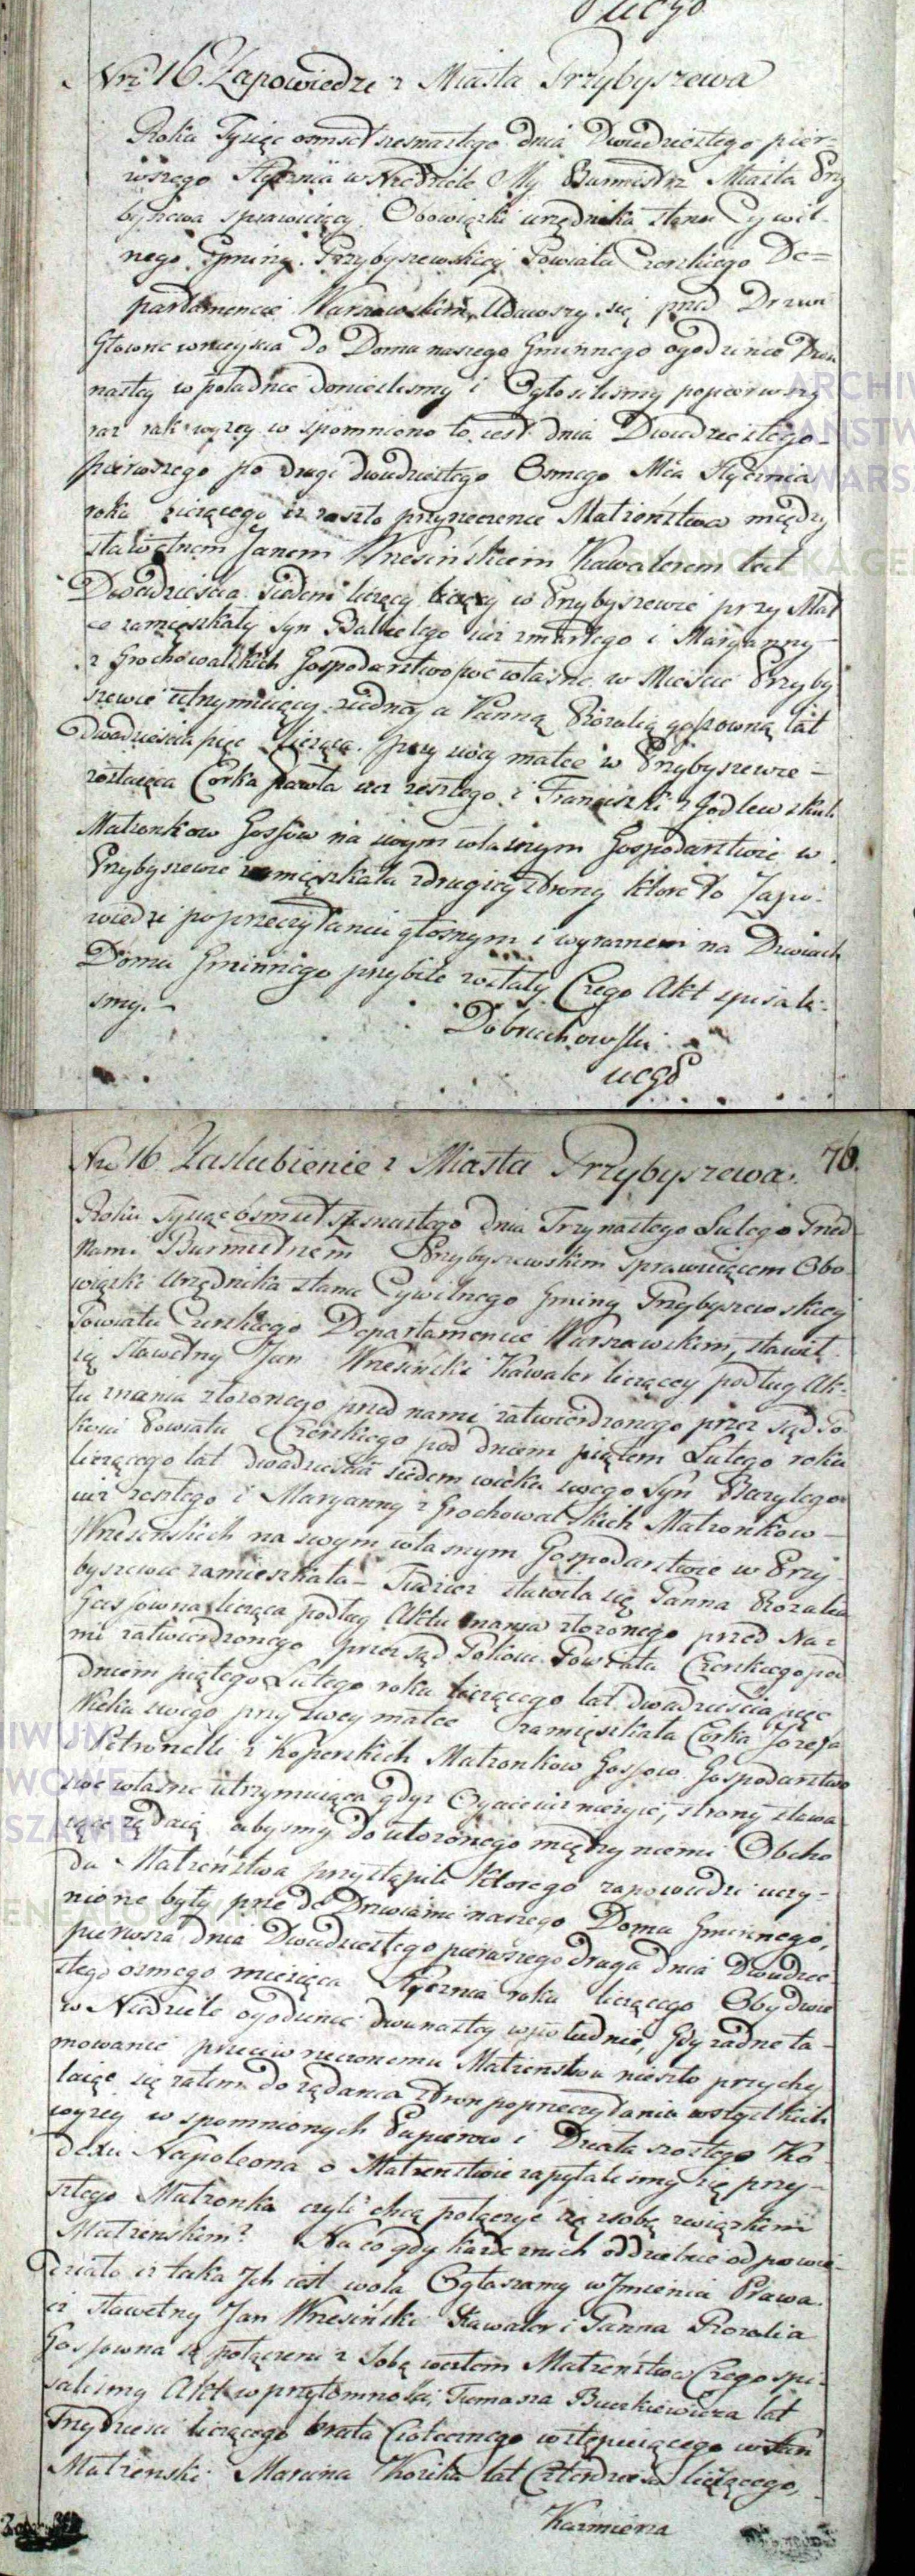 ucgo
Nro 16. Zapowiedzi z Miasta Przybyszewa
Roku Tysiąc osmset szesnastego dnia Dwudziestego pier-
wszego Stycznia w Niedziele My Burmistrz Miasta Przy
byszewa sprawuiący Obowiązki urzędnika Stanu Cywil-
nego Gminy Przybyszewskiey Powiatu Czerskiego De=
partamencie Warszawskim, Udawszy się przed Drzwi
Głowne wnieyscia do Domu naszego Gminnego ogodzinie Dwu
nastey w południe donieslismy i Ogłosilismy popierwszy
raz iak wyzey w spomniono to iest dnia Dwudziestego-
pierwszego po drugi dwudziestego Osmego Mca Stycznia
roku biezącego iz zaszło przyrzeczenie Małzeństwa między
stawetnem Janem Wresińskiem Kawalerem lat
Dwadziescia siedem liczący w Przybyszewie przy Mat
ce zamięszkały syn iuz zmarłego i Maryanny
z Grochowalskich Gospodarstwo swe własne w Miescie Przyby
szewie utrzymuiący ziedney a Panną Rozalią Gosowną lat
Dwadziescia pięc liczącą. przy swey matce w Przybyszewie -
zostaiąca Corka Pawła iuz zeszłego i Franciszki z Godlewskich
Małzonkow Gossow na swym własnym Gospodarstwie w
Przybyszewie zamięszkała zdrugiey strony ktore to Zapo-
wiedzi poprzeczytaniu głosnym i wyraznem na Drzwiach
Domu Gminnego przybite zostały Czego Akt spisali-
smy.-
Dobruchowski
ucgo
Nro 16 Zaslubienie z Miasta Przybyszewa. 76.
Roku Tysiąc osmset szesnastego dnia Trzynastego Lutego Przed
Nami Burmistrzem Przybyszewskim sprawuiącem Obo-
wiązki Urzędnika Stanu Cywilnego Gminy Przybyszewskiey
Powiatu Czerskiego Departamencie Warszawskim, stawił
się Stawetny Jan Wresiński Kawaler liczący podług Ak-
tu znania złozonego przed nami zatwierdzonego przez sąd Po-
koiu Powiatu Czerskiego pod dniem piątem Lutego roku
biezącego lat dwadziescia siedem wieku swego Syn
iuz zeszłego i Maryanny z Grochowalskich Małzonkow -
Wresinskich na swym własnym Gospodarstwie w Przy-
byszewie zamieszkała - Tudziez stawiła się Panna Rozalia
Gossowna licząca podług Aktu znania złozonego przed Na-
mi zatwierdzonego przez sąd Pokoiu Powiatu Czerskiego pod
dniem piątego Lutego roku biezącego lat dwadziescia pięc
Wieku swego przy swey matce zamięszkała Corka Jozefa
i Petronelli z Koperskich Małzonkow Gossow Gospodarstwo
swe własne utrzymuiąca gdyz Oyciec iuz niezyie, strony stawa
iące ządaią abysmy do ułozonego między niemi Obcho
du Małzeństwa przystąpili ktorego zapowiedzi uczy-
nione były przede Drzwiami naszego Domu Gminnego,
pierwsza dnia Dwudziestego pierwszego druga dnia Dwudzie
stego osmego miesiąca Stycznia roku biezącego Obydwie
w Niedziele ogodzinie dwunastey w południe, Gdy zadne ta-
mowanie przeciw rzeczonemu Małzenstwu nieszło przychy
laiąc się zatem do ządania stron poprzeczytaniu wszystkich
wyzey w spomnionych Papierow i Działa szostego Ko-
dexu Napoleona o Małzenstwie zapytalismy się przy-
szłego Małzonka czyli chcą połączyć się zsobą związkiem
Małzenskim? Na co gdy kazde znich oddzielnie odpowie-
działo iz taka Ich iest wola Ogłaszamy w Imieniu Prawa
iz stawetny Jan Wresiński Kawaler i Panna Rozalia
Gossowna są połączeni z Sobą węzłem Małzeństwa Czego spi-
salismy Akt w przytomnosci Tomasza Buczkiewicza lat
Trzydziesci liczącego brata Ciotecznego wstępuiącego wstan
Małzenski Marcina Kozika lat Czterdziesci liczącego,
Kazmierza